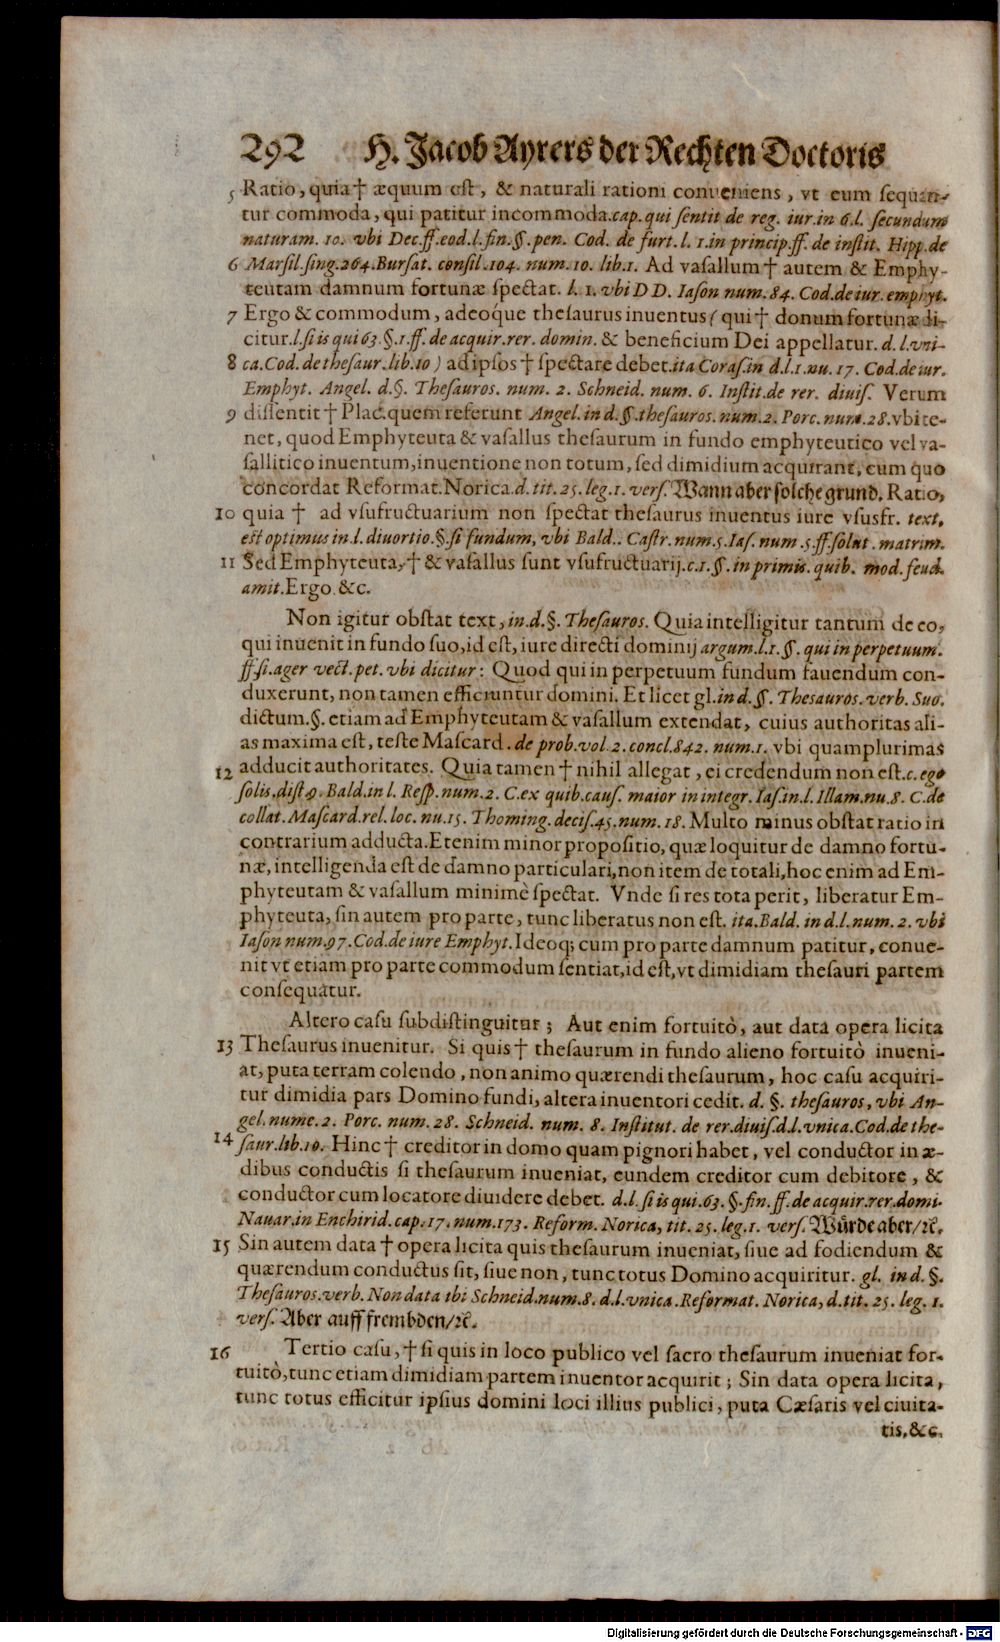 292 H. Jacob Ayrers der Rechten Doctoris
5 Ratio, quia † æquum est, & naturali rationi conveniens, vt eum sequan-
tur commoda, qui patitur incommoda. cap. qui sentit de reg. iur. in 6. l. secundum
naturam. 10. vbi Dec. ff. eod. l. fin. §. pen. Cod. de furt. l. 1. in princip. ff. de instit. Hipp. de
6 Marsil. sing. 264. Bursat. consil. 104. num. 10. lib. 1. Ad vasallum † autem & Emphy-
teutam damnum fortunæ spectat. l. 1. vbi DD. Iason num. 84. Cod. de iur. emphyt.
7 Ergo & commodum, adeoque thesaurus inuentus (qui † donum fortunæ di-
citur. l. si is qui 63. §. 1. ff. de acquir. rer. domin. & beneficium Dei appellatur. d. l. vni-
8 ca. Cod. de thesaur. lib. 10) ad ipsos † spectare debet. ita Coras. in d. l. 1. nu. 17. Cod. de iur.
Emphyt. Angel. d. §. Thesauros. num. 2. Schneid. num. 6. Instit. de rer. diuis. Verum
9 dissentit † Plac. quem referunt Angel. in d. §. thesauros. num. 2. Porc. num. 28. vbi te-
net, quod Emphyteuta & vasallus thesaurum in fundo emphyteutico vel va-
sallitico inuentum, inuentione non totum, sed dimidium acquirant, cum quo
concordat Reformat. Norica. d. tit. 25. leg. 1. vers. Wann aber solche grund. Ratio,
10 quia † ad vsufructuarium non spectat thesaurus inuentus iure vsusfr. text.
est optimus in l. diuortio. §. si fundum, vbi Bald. Castr. num. 5. Ias. num. 5. ff. solut. matrim.
11 Sed Emphyteuta, † & vasallus sunt vsufructuarij. c. 1. §. in primis. quib. mod. feud.
amit. Ergo &c.
Non igitur obstat text, in. d. §. Thesauros. Quia intelligitur tantum de eo,
qui inuenit in fundo suo, id est, iure directi dominij argum. l. 1. §. qui in perpetuum.
ff. si. ager vect. pet. vbi dicitur: Quod qui in perpetuum fundum fauendum con-
duxerunt, non tamen efficiuntur domini. Et licet gl. in d. §. Thesauros. verb. Suo.
dictum. §. etiam ad Emphyteutam & vasallum extendat, cuius authoritas ali-
as maxima est, teste Mascard. de prob. vol 2. concl. 842. num. 1. vbi quamplurimas
12 adducit authoritates. Quia tamen † nihil allegat, ei credendum non est. c. ego
solis. dist. 9. Bald. in l. Resp. num. 2. C. ex quib. caus. maior in integr. Ias. in. l. Illam. nu. 8. C. de
collat. Mascard. rel. loc. nu. 15. Thoming. decis. 45. num. 18. Multo minus obstat ratio in
contrarium adducta. Etenim minor propositio, quæ loquitur de damno fortu-
næ, intelligenda est de damno particulari, non item de totali, hoc enim ad Em-
phyteutam & vasallum minimè spectat. Vnde si res tota perit, liberatur Em-
phyteuta, sin autem pro parte, tunc liberatus non est. ita. Bald. in d. l. num. 2. vbi
Iason num. 97. Cod. de iure Emphyt. Ideoq; cum pro parte damnum patitur, conue-
nit vt etiam pro parte commodum sentiat, id est, vt dimidiam thesauri partem
consequatur.
Altero casu subdistinguitur; Aut enim fortuitò, aut data opera licita
13 Thesaurus inuenitur. Si quis † thesaurum in fundo alieno fortuitò inueni-
at, puta terram colendo, non animo quærendi thesaurum, hoc casu acquiri-
tur dimidia pars Domino fundi, altera inuentori cedit. d. §. thesauros, vbi An-
gel. nume. 2. Porc. num. 28. Schneid. num. 8. Institut. de rer. diuis. d. l. vnica. Cod. de the-
14 saur. lib. 10. Hinc † creditor in domo quam pignori habet, vel conductor in æ-
dibus conductis si thesaurum inueniat, eundem creditor cum debitore, &
conductor cum locatore diuidere debet. d. l. si is qui. 63. §. fin. ff. de acquir. rer. domi.
Nauar. in Enchirid. cap. 17. num. 173. Reform. Norica, tit. 25. leg. 1. vers. Würde aber/ꝛc.
15 Sin autem data † opera licita quis thesaurum inueniat, siue ad fodiendum &
quærendum conductus sit, siue non, tunc totus Domino acquiritur. gl. in d. §.
Thesauros. verb. Non data ibi Schneid. num. 8. d. l. vnica. Reformat. Norica, d. tit. 25. leg. 1.
vers. Aber auff frembden/ꝛc.
16 Tertio casu, † si quis in loco publico vel sacro thesaurum inueniat for-
tuitò, tunc etiam dimidiam partem inuentor acquirit; Sin data opera licita,
tunc totus efficitur ipsius domini loci illius publici, puta Cæsaris vel ciuita-
tis, &c.
Digitalisierung gefördert durch die Deutsche Forschungsgemeinschaft - DFG